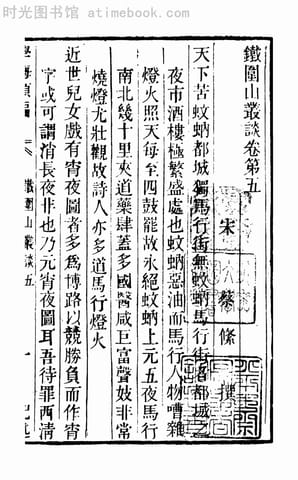 时光图书馆 www.atimebook.com
鐵圍山叢談卷第五
宋 蔡絛 撰
天下苦蚊蚋都城獨馬行街無蚊蚋馬行街者都城之
夜市酒樓極繁盛處也蚊蚋惡油而馬行人物嘈雜
燈火照天每至四鼓罷故永絕蚊蚋上元五夜馬行
南北幾十里夾道藥肆蓋多國醫咸巨富聲妓非常
燒燈尤壯觀故詩人亦多道馬行燈火
近世兒女戲有宵夜圖者多為博路以競勝負而作宵
字或可謂消長夜非也乃元宵夜圖耳吾待罪西清
鐵圍山叢談五 一